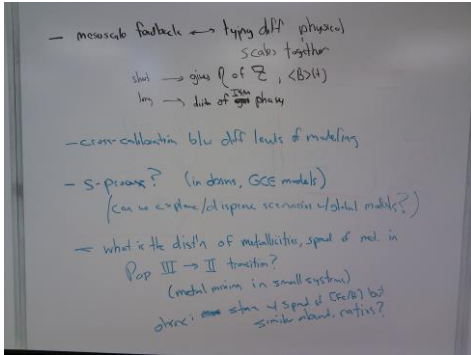 - mesoscale feedback ↔ tying diff physical
scales together
short → gives η of Σ, <B>(t)
long → distn of ISM phases
- cross-calibration b/w diff levels of modeling
- s-process? (in dwarfs, GCE models)
(can we explore/disprove scenarios w/global models?)
- what is the dist'n of metallicities, spread of met. in
Pop III → II transition?
(metal mixing in small system)
stars w/ spread of [Fe/H] but
similar abund. ratios?